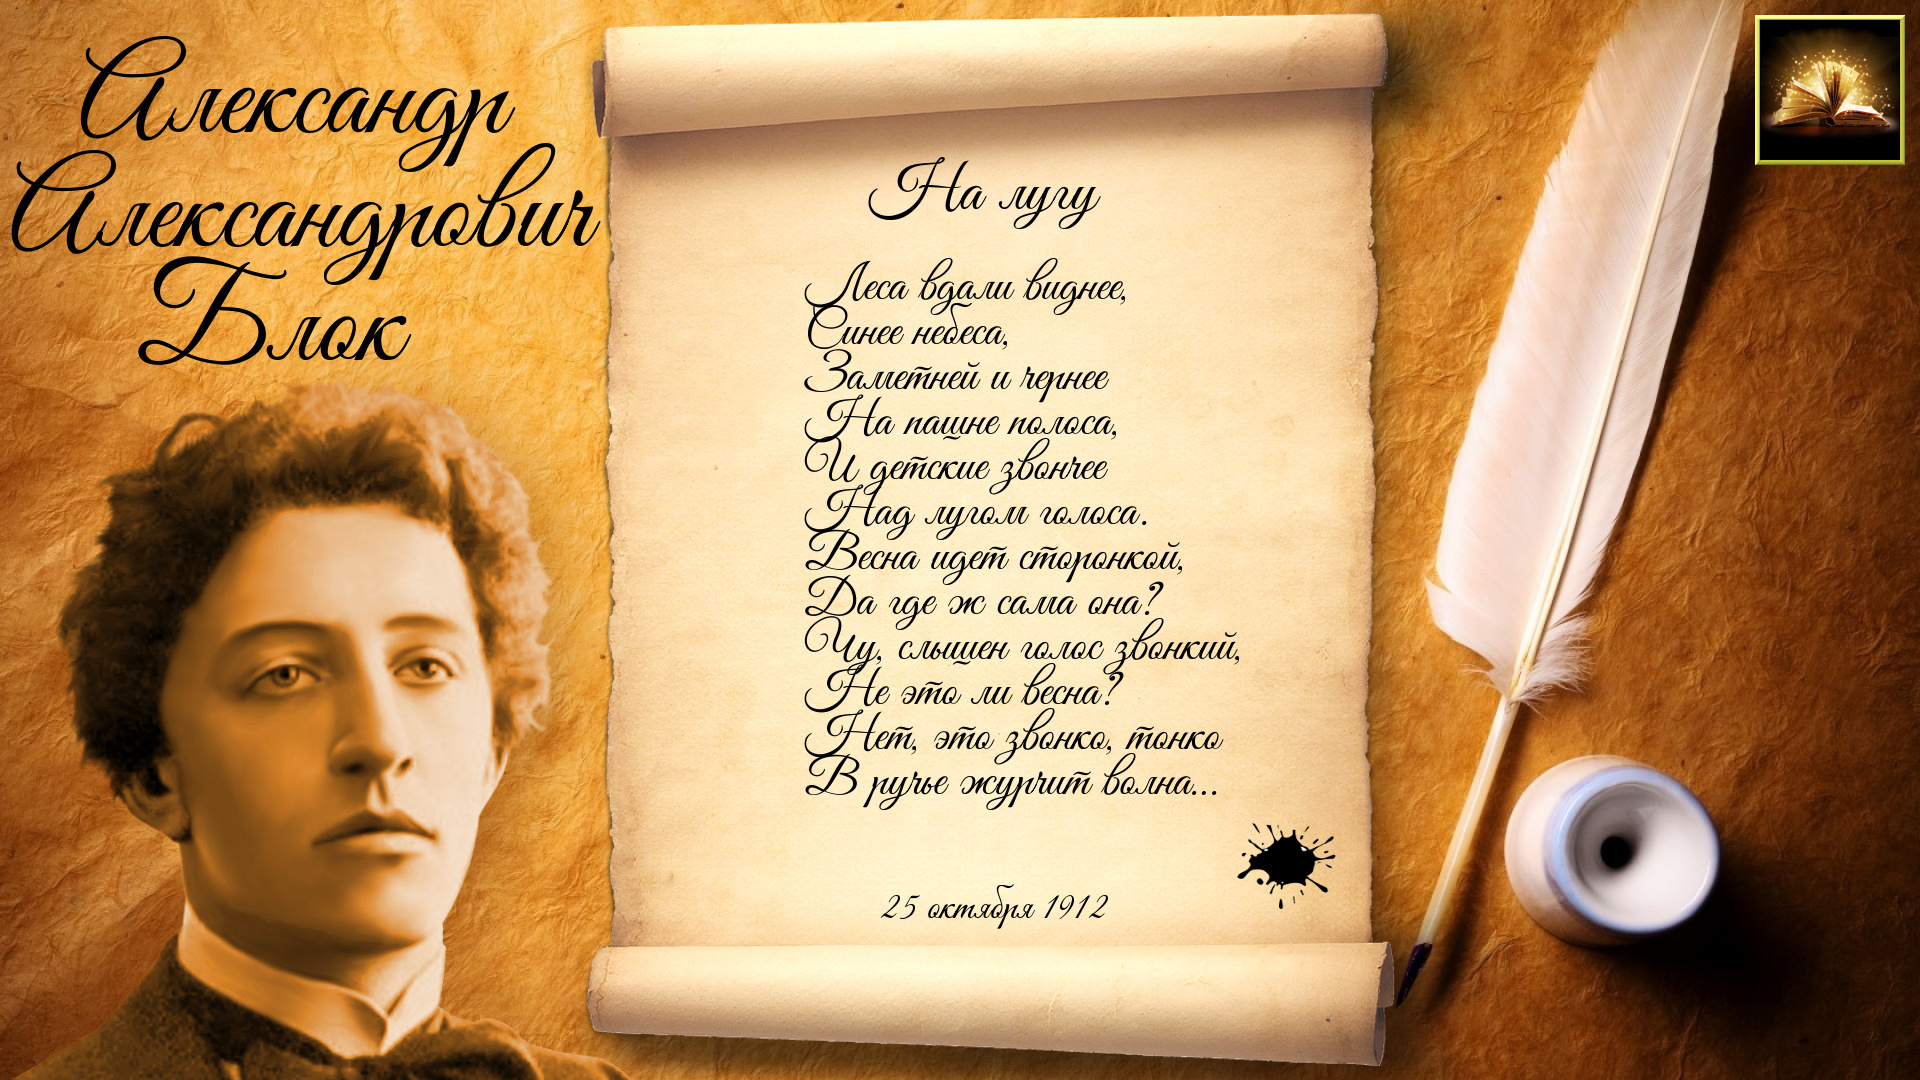 Александр
Александрович
Блок
На лугу
Леса вдали виднее,
Синее небеса,
Заметней и чернее
На пашне полоса,
И детские звончее
Над лугом голоса.
Весна идет сторонкой,
Да где ж сама она?
Чу, слышен голос звонкий,
Не это ли весна?
Нет, это звонко, тонко
В ручье журчит волна...
25 октября 1912